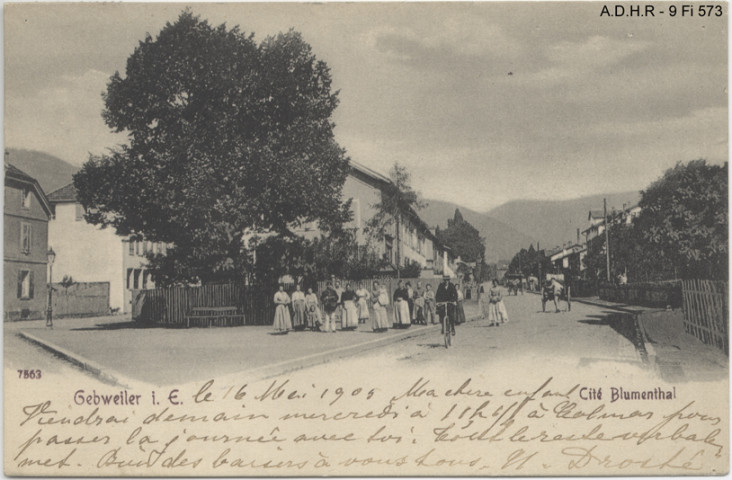 A.D.H.R - 9 Fi 573
7563
Gebweiler i. E. le 16 Mai 1905 Ma chere enfant Cité Blumenthal
Viendrai demain mercredi à 11h à Kolmar pour
passer la journée avec toi. Tout le reste verbale
met. des baisers à vous tous. Droste